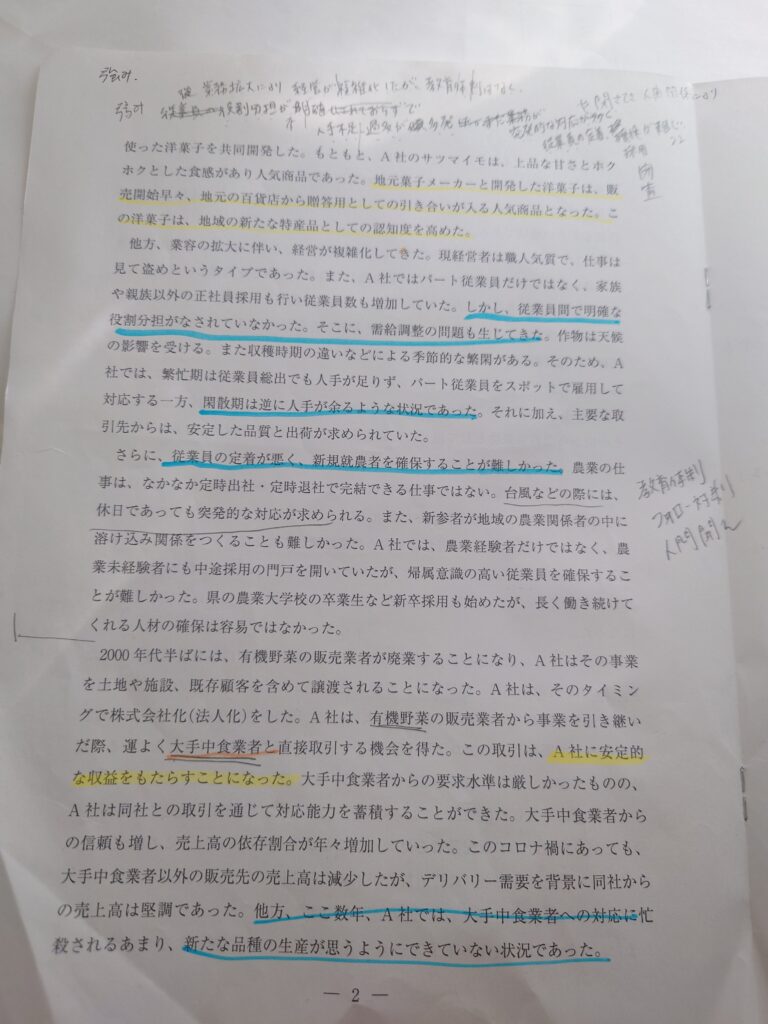 強み.
業務拡大により 経営が複雑化したが、教育体制はなく、
強み 従業員の役割分担が明確化されておらず
人手不足
突発的な対応が多く
従業員の定着、
採用
使った洋菓子を共同開発した。もともと、A社のサツマイモは、上品な甘さとホク
ホクとした食感があり人気商品であった。地元菓子メーカーと開発した洋菓子は、販
売開始早々、地元の百貨店から贈答用としての引き合いが入る人気商品となった。こ
の洋菓子は、地域の新たな特産品としての認知度を高めた。
他方、業容の拡大に伴い、経営が複雑化してきた。現経営者は職人気質で、仕事は
見て盗めというタイプであった。また、A社ではパート従業員だけではなく、家族
や親族以外の正社員採用も行い従業員数も増加していた。しかし、従業員間で明確な
役割分担がなされていなかった。そこに、需給調整の問題も生じてきた。作物は天候
の影響を受ける。また収穫時期の違いなどによる季節的な繁閑がある。そのため、A
社では、繁忙期は従業員総出でも人手が足りず、パート従業員をスポットで雇用して
対応する一方、閑散期は逆に人手が余るような状況であった。それに加え、主要な取
引先からは、安定した品質と出荷が求められていた。
さらに、従業員の定着が悪く、新規就農者を確保することが難しかった。農業の仕
事は、なかなか定時出社・定時退社で完結できる仕事ではない。台風などの際には、
休日であっても突発的な対応が求められる。また、新参者が地域の農業関係者の中に
溶け込み関係をつくることも難しかった。A社では、農業経験者だけではなく、農
業未経験者にも中途採用の門戸を開いていたが、帰属意識の高い従業員を確保するこ
とが難しかった。県の農業大学校の卒業生など新卒採用も始めたが、長く働き続けて
くれる人材の確保は容易ではなかった。
教育体制
フォロー体制
人間関係
2000年代半ばには、有機野菜の販売業者が廃業することになり、A社はその事業
を土地や施設、既存顧客を含めて譲渡されることになった。A社は、そのタイミン
グで株式会社化(法人化)をした。A社は、有機野菜の販売業者から事業を引き継い
だ際、運よく大手中食業者と直接取引する機会を得た。この取引は、A社に安定的
な収益をもたらすことになった。大手中食業者からの要求水準は厳しかったものの、
A社は同社との取引を通じて対応能力を蓄積することができた。大手中食業者から
の信頼も増し、売上高の依存割合が年々増加していった。このコロナ禍にあっても、
大手中食業者以外の販売先の売上高は減少したが、デリバリー需要を背景に同社から
の売上高は堅調であった。他方、ここ数年、A社では、大手中食業者への対応に忙
殺されるあまり、新たな品種の生産が思うようにできていない状況であった。
— 2 —